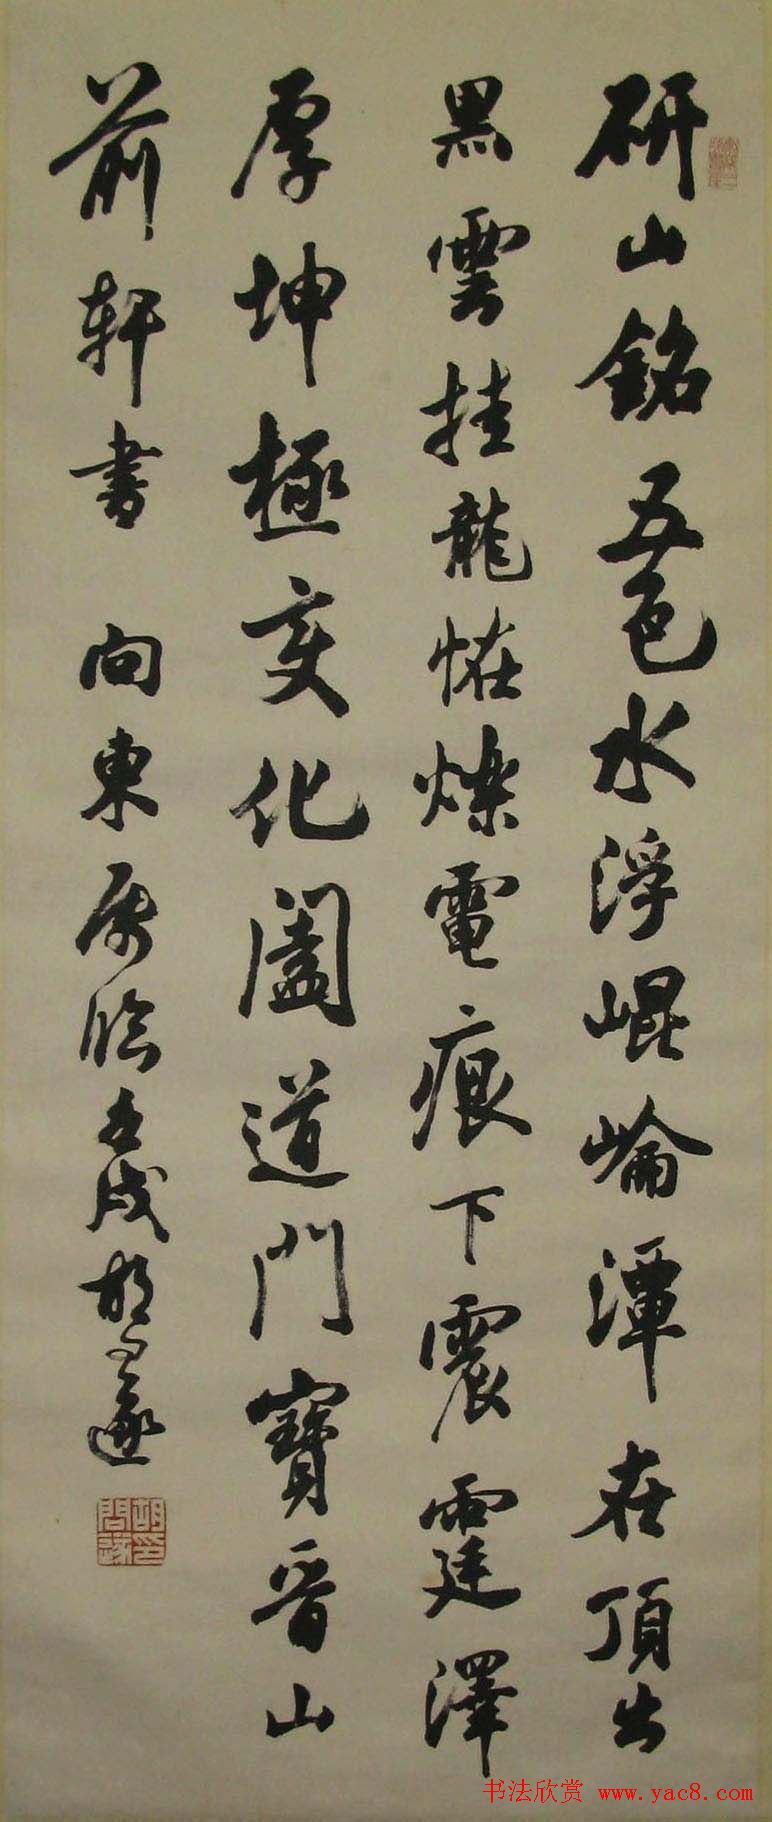 研山銘五色水浮崐崘潭在頂出
黑雲挂龍恠爍電痕下震霆澤
厚坤極变化阖道門寶晉山
前軒書 向東属临壬戌胡问遂
胡问遂印
书法欣赏 www.yac8.com